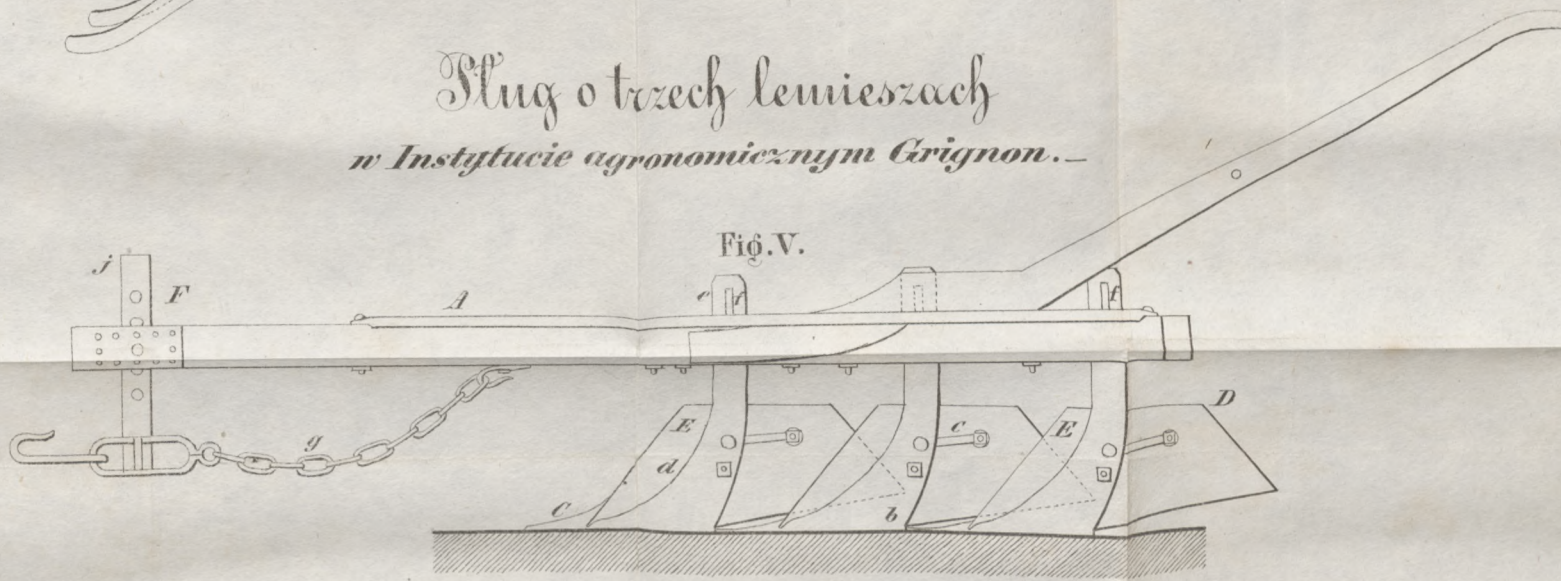 Pług o trzech lemieszach
w Instytucie agronomicznym Grignon.—
Fig.V.
j
F
A
e f
f
E
c
E
D
g
d
c
b